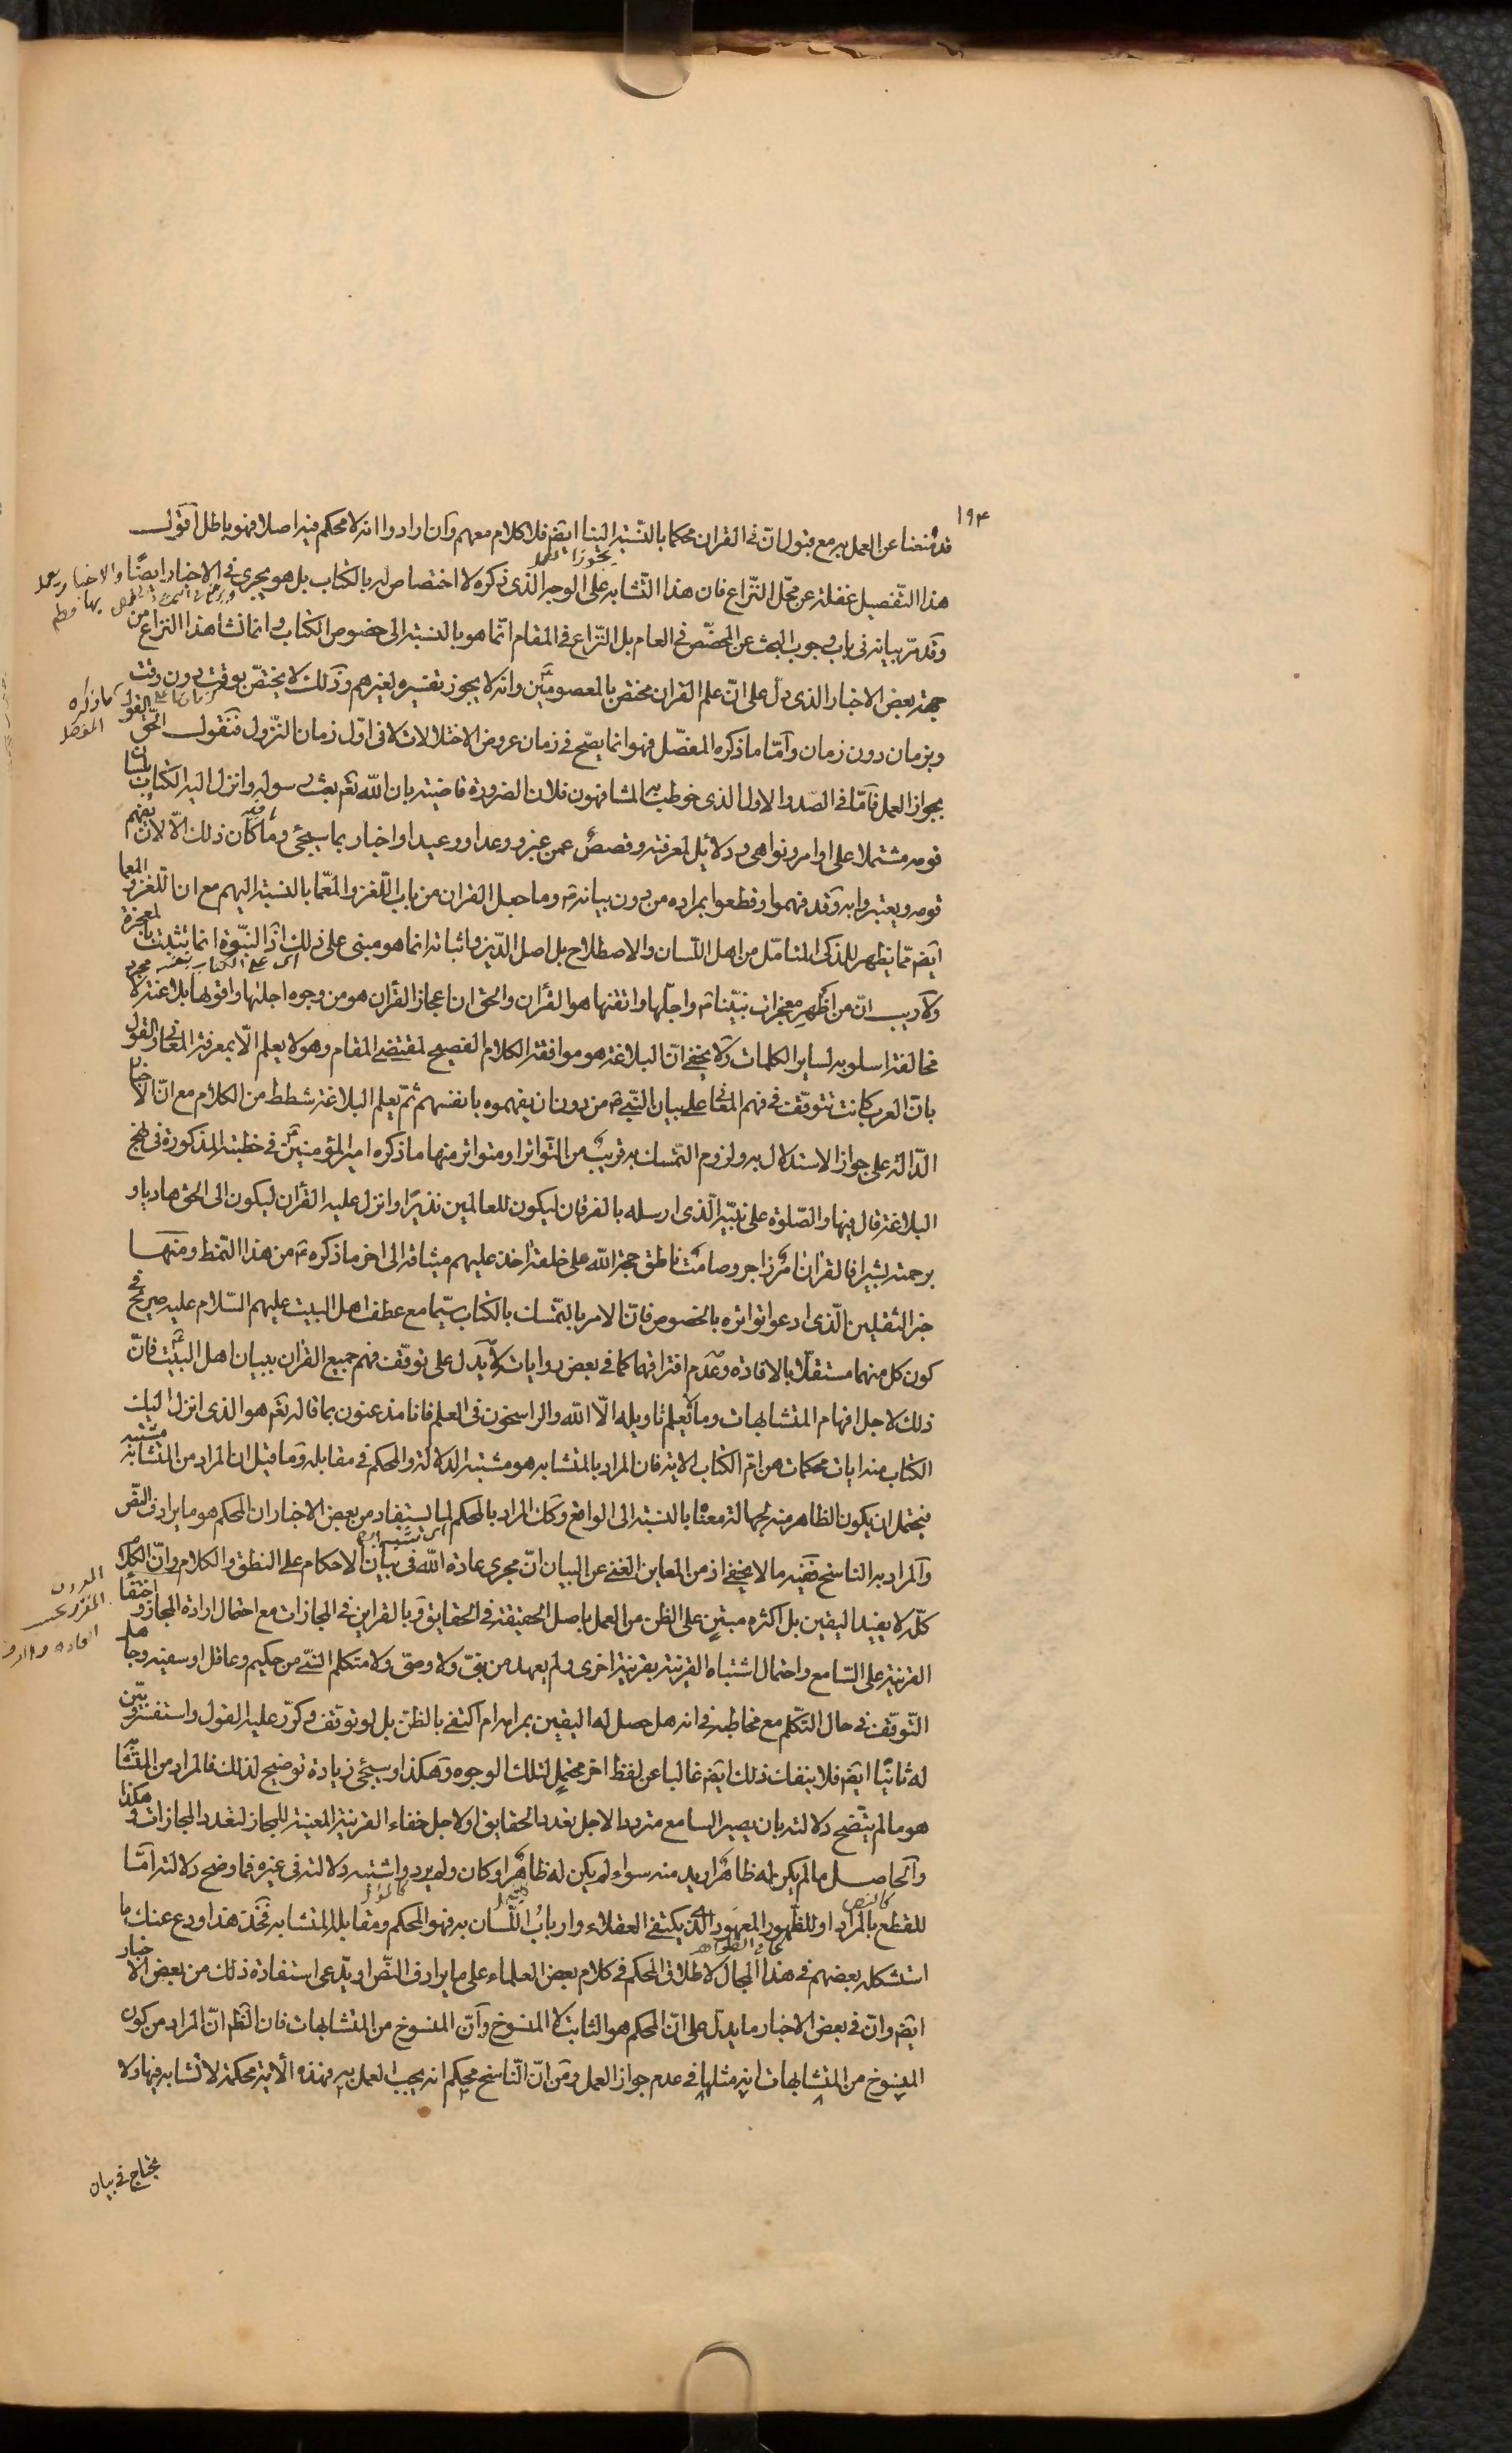 ١٩٤
قد منعنا عن العمل به مع قبول ان فى القران محكما بالنسبة الينا ايضم فلا كلام معهم وان ارادوا انه لا محكم فيه اصلا فهو باطل اقول
هذا التفصيل غفلة عن محل النزاع فان هذا التشابه على الوجه الذى ذكره لا اختصاص له بالكتاب بل هو يجرى فى الاخبار ايضًا
وقد مرّ بيانه فى باب وجوب البحث عن المخصّص فى العام بل النزاع فى المقام انما هو بالنسبة الى خصوص الكتاب وانما نشا هذا النزاع من
جهة بعض الاخبار الذى دل على انّ علم القران مختص بالمعصومين ع وانه لا يجوز تفسيره لغيرهم وذلك لا يختصّ بوقت دون وقت
وبزمان دون زمان وامّا ما ذكره المفصّل فهو انما يصحّ فى زمان عروض الاختلالات لا فى اوّل زمان النزول فنقول الحق القول
كما ذكره المفصل
بجواز العمل فامّا فى الصّدر الاول الذى خوطب به المشافهون فلان الضرورة قاضية بان اللّه تعم بعث رسوله وانزل اليه الكتاب بلسان
قومه مشتملا على اوامر ونواهى ودلائل لمعرفته وقصص عمن غبر ووعدا ووعيدا واخبار بما سيجئ وما كان ذلك الّا لان يفهم
قومه ويعتبروا به وقد فهموا وقطعوا بمراده من دون بيانه ص وما جعل القران من باب اللّغز والمعّما بالنسبة اليهم مع ان اللّغز والمعما
ايضم مّما يظهر للذكى المتامّل من اهل اللسان والاصطلاح بل اصل الدّين واثباته انما هو مبنى على ذلك اذ النبّوة انما يثبت بالمعجزة
ولا ريب انّ من اظهر معجزات نبيّنا ص واجلّها واتقنها هو القران والحق ان اعجاز القران هو من وجوه اجلّها واقوالها بلاغته لا مجرد
مخالفة اسلوبه لساير الكلمات ولا يخفى انّ البلاغة هو موافقة الكلام الفصيح لمقتضى المقام وهو لا يعلم الّا بمعرفة المعانى والقول
بان العرب كانت تتوقّف فى فهم المعانى على بيان النبّى ص من دون ان يفهموه بانفسهم ثم يعلم البلاغة شطط من الكلام مع انّ الاخبار
الدّالة على جواز الاستدلال به ولزوم التمّسك به قريب من التواتر او متواتر منها ما ذكره امير المؤمنين ع فى خطبته المذكورة فى نهج
البلاغة قال فيها والصّلوة على نبيّه الّذى ارسله بالفرقان ليكون للعالمين نذيرًا وانزل عليه القران ليكون الى الحق هاديا و
برحمته بشيرا فالقران امر زاجر وصامت ناطق حجة اللّه على خلقه اخذ عليهم ميثاقه الى اخر ما ذكره ع من هذا النمط ومنها
خبر الثقلين الّذى ادعوا تواتره بالخصوص فانّ الامر بالتمّسك بالكتاب سيّما مع عطف اهل البيت عليهم السّلام عليه صريح فى
كون كل منهما مستقلّا بالافادة وعدم افتراقهما كما فى بعض روايات لا يدل على توقّف فهم جميع القران ببيان اهل البيت ع فانّ
ذلك لاجل افهام المتشابهات وما يعلم تاويله الّا اللّه والراسخون فى العلم فانا مذعنون بما قاله تعم هو الذى انزل اليك
الكتاب منه ايات محكمات هن امّ الكتاب الاية فان المراد بالمتشابه هو مشتبه الدلالة والمحكم فى مقابله وما قيل ان المراد من المتشابه مشتبه
فيحتمل ان يكون الظاهر منه لجهالة معناه بالنسبة الى الواقع وكان المراد بالمحكم لما يستفاد من بعض الاخبار ان المحكم هو ما يرادف النص
والمراد به الناسخ ففيه ما لا يخفى اذ من المعاين الغنى عن البيان انّ مجرى عادة اللّه فى بيان الاحكام على النطق والكلام وانّ الكلام
كلّه لا يفيد اليقين بل اكثره مبتنٍ على الظن من العمل باصل الحقيقة فى الحقايق وبالقراين فى المجازات مع احتمال ارادة المجاز واختفاء
القرينة على السّامع واحتمال اشتباه القرينة بقرينة اخرى ولم يعهد من نبىّ ولا وصىّ ولا متكلم الشىّ من حكيم وعاقل او سفيه وجاهل
التّوقّف فى حال التكّلم مع مخاطبه فى انه هل حصل له اليقين بمرامه ام اكتفى بالظنّ بل لو توقف وكرّر عليه القول واستفسر وبيّن
له ثانيًا ايضم فلا ينفك ذلك ايضم غالبا عن لفظ اخر محتملٍ لتلك الوجوه وهكذا وسيجئ زيادة توضيح لذلك فالمراد من المتشابه
هو ما لم يتّضح دلالته بان يصير السامع مترددا لاجل تعدد الحقايق او لاجل خفاء القرينة المعينة للمجاز لتعدد المجازات وهكذا
والحاصل ما لم يكن له ظاهر اريد منه سواء لم يكن له ظاهر او كان ولم يرد واشتبه دلالته فى غيره فما وضح دلالته امّا
للقطع بالمراد او للظّهور المعهود الّذى يكتفى العقلاء وارباب اللّسان به فهو المحكم ومقابله المتشابه فخذ هذا ودع عنك ما
كالنص
كالمؤل
استشكله بعضهم فى هذا المجال لاطلاق المحكم فى كلام بعض العلماء على ما يرادف النّص او يدّعى استفادة ذلك من بعض الاخبار
ايضم وانّ فى بعض الاخبار ما يدل على انّ المحكم هو الثابت لا المنسوخ وانّ المنسوخ من المتشابهات فان الظم انّ المراد من كون
المنسوخ من المتشابهات انه مثلها فى عدم جواز العمل ومن انّ النّاسخ محكم انه يجب العمل به فهذه الاية محكمة لا تشابه فيها ولا
يحتاج فى بيان